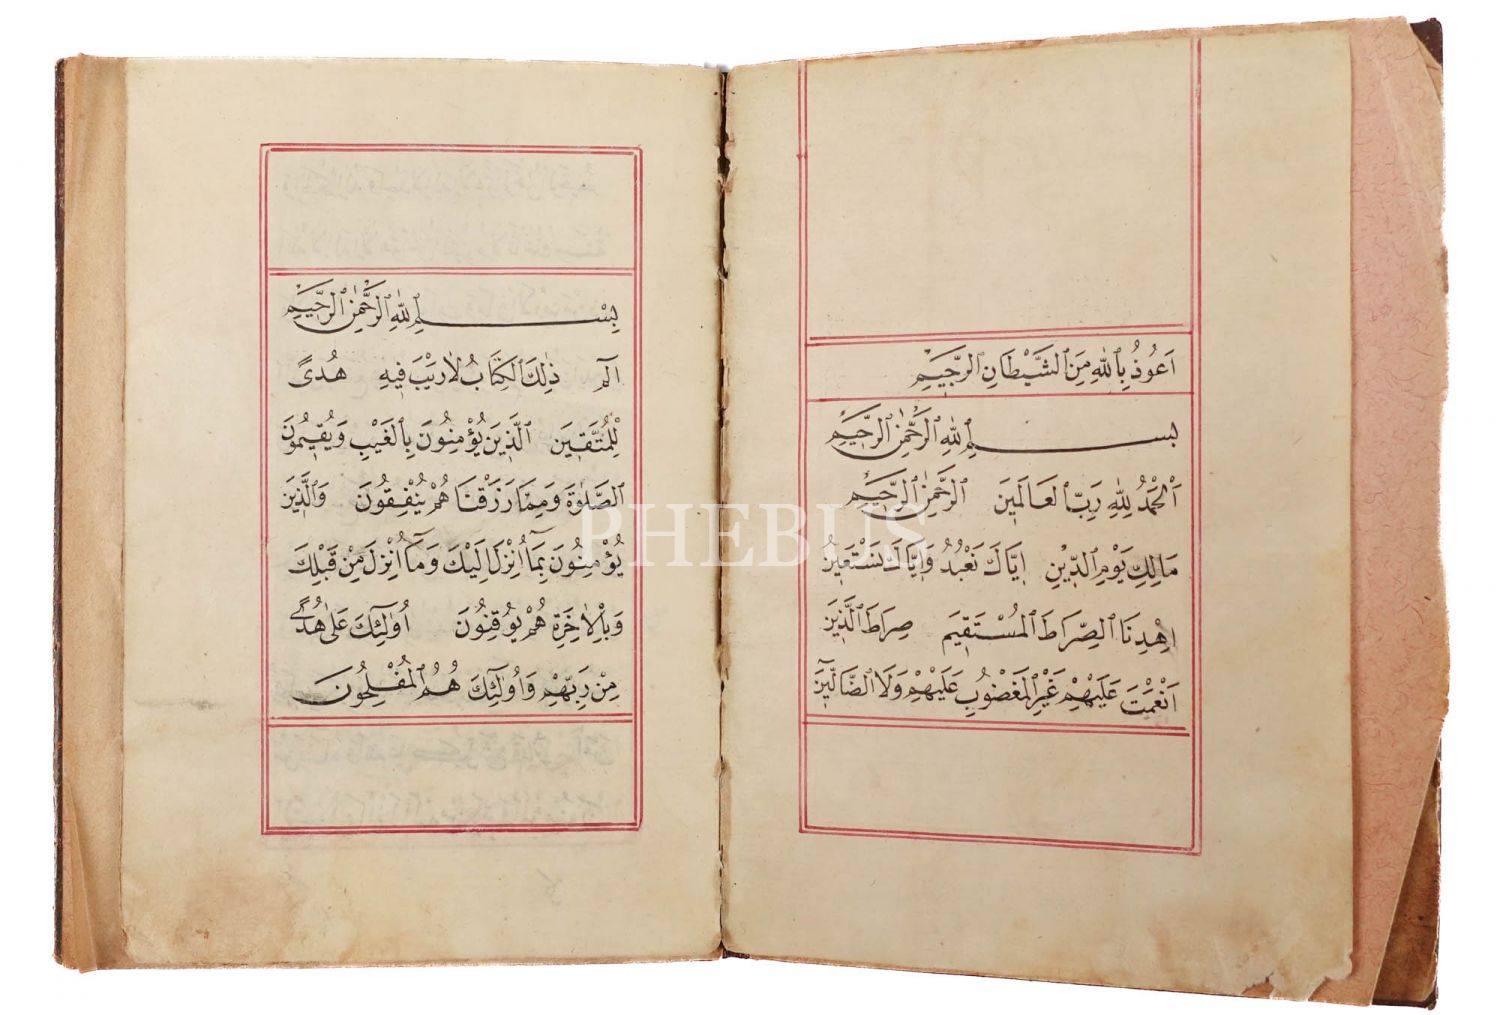 اَعُوذُ بِاللّٰهِ مِنَ الشَّيْطَانِ الرَّجِيمِ
بِسْمِ اللّٰهِ الرَّحْمٰنِ الرَّحِيمِ
اَلْحَمْدُ لِلّٰهِ رَبِّ الْعَالَمِينَ الرَّحْمٰنِ الرَّحِيمِ
مَالِكِ يَوْمِ الدِّينِ اِيَّاكَ نَعْبُدُ وَاِيَّاكَ نَسْتَعِينُ
اِهْدِنَا الصِّرَاطَ الْمُسْتَقِيمَ صِرَاطَ الَّذِينَ
اَنْعَمْتَ عَلَيْهِمْ غَيْرِ الْمَغْضُوبِ عَلَيْهِمْ وَلَا الضَّالِّينَ
بِسْمِ اللّٰهِ الرَّحْمٰنِ الرَّحِيمِ
الٓمٓ ذٰلِكَ الْكِتَابُ لَا رَيْبَ فِيهِ هُدًى
لِلْمُتَّقِينَ الَّذِينَ يُؤْمِنُونَ بِالْغَيْبِ وَيُقِيمُونَ
الصَّلٰوةَ وَمِمَّا رَزَقْنَا هُمْ يُنْفِقُونَ وَالَّذِينَ
يُؤْمِنُونَ بِمَا اُنْزِلَ اِلَيْكَ وَمَا اُنْزِلَ مِنْ قَبْلِكَ
وَبِالْاٰخِرَةِ هُمْ يُوقِنُونَ اُولٰئِكَ عَلٰى هُدًى
مِنْ رَبِّهِمْ وَاُولٰئِكَ هُمُ الْمُفْلِحُونَ
PHEBUS